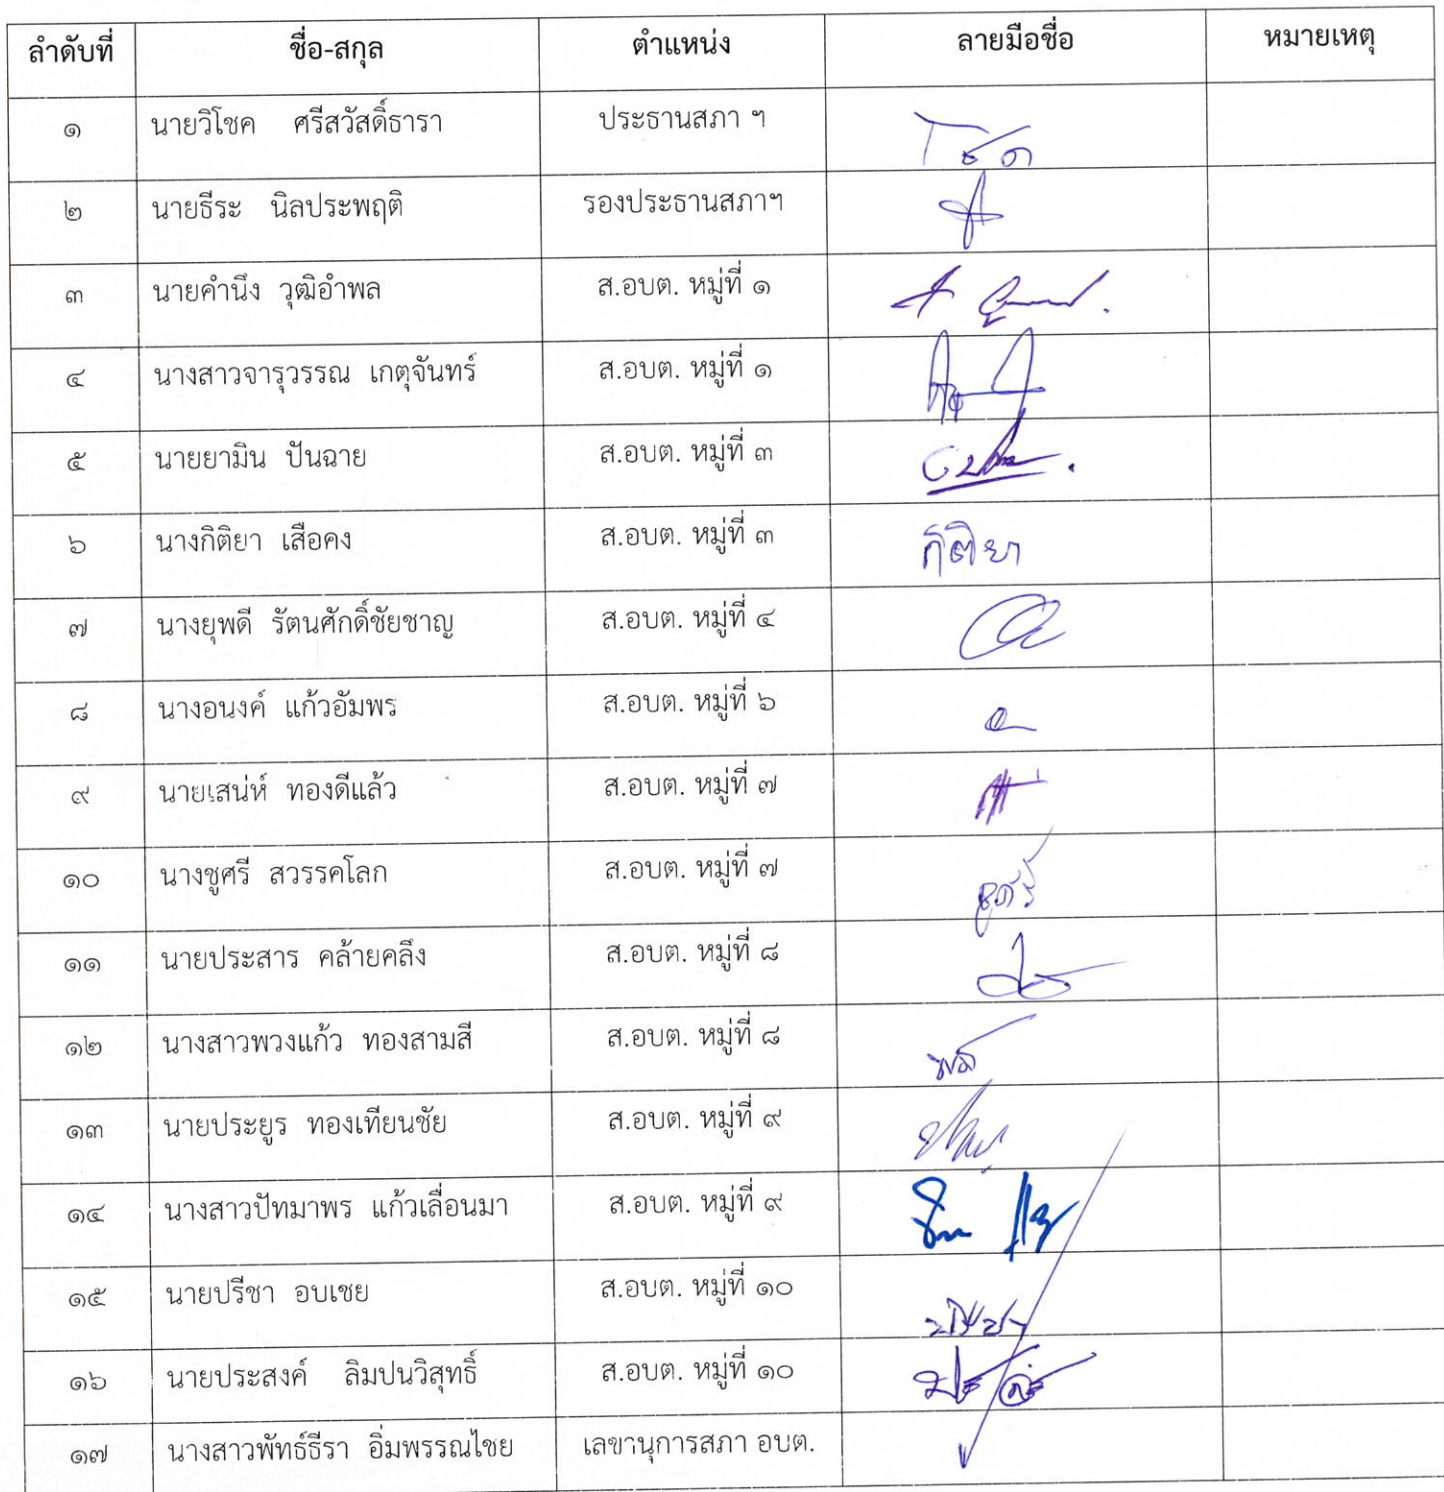 ลำดับที่ ชื่อ-สกุล ตำแหน่ง ลายมือชื่อ หมายเหตุ
๑ นายวิโชค ศรีสวัสดิ์ธารา ประธานสภา ฯ
๒ นายธีระ นิลประพฤติ รองประธานสภาฯ
๓ นายคำนึง วุฒิอำพล ส.อบต. หมู่ที่ ๑
๔ นางสาวจารุวรรณ เกตุจันทร์ ส.อบต. หมู่ที่ ๑
๕ นายยามิน ปันฉาย ส.อบต. หมู่ที่ ๓
๖ นางกิติยา เสือคง ส.อบต. หมู่ที่ ๓ กิติยา
๗ นางยุพดี รัตนศักดิ์ชัยชาญ ส.อบต. หมู่ที่ ๔
๘ นางอนงค์ แก้วอัมพร ส.อบต. หมู่ที่ ๖
๙ นายเสน่ห์ ทองดีแล้ว ส.อบต. หมู่ที่ ๗
๑๐ นางชูศรี สวรรคโลก ส.อบต. หมู่ที่ ๗ ชูศรี
๑๑ นายประสาร คล้ายคลึง ส.อบต. หมู่ที่ ๘
๑๒ นางสาวพวงแก้ว ทองสามสี ส.อบต. หมู่ที่ ๘
๑๓ นายประยูร ทองเทียนชัย ส.อบต. หมู่ที่ ๙
๑๔ นางสาวปัทมาพร แก้วเลื่อนมา ส.อบต. หมู่ที่ ๙
๑๕ นายปรีชา อบเชย ส.อบต. หมู่ที่ ๑๐ ปรีชา
๑๖ นายประสงค์ ลิมปนวิสุทธิ์ ส.อบต. หมู่ที่ ๑๐
๑๗ นางสาวพัทธ์ธีรา อิ่มพรรณไชย เลขานุการสภา อบต.